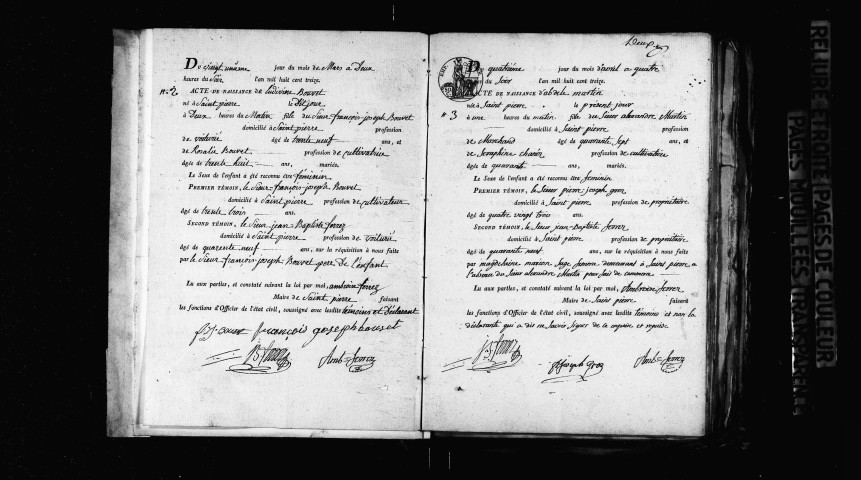 Du vingt unième jour du mois de Mars a Deux
heures du soir l'an mil huit cent treize.
n° 2 ACTE DE NAISSANCE de ludivine Bouvet
né à Saint pierre le dit jour
à Deux heures du Matin fille du Sieur françois joseph Bouvet
domicilié à Saint pierre profession
de voiturié âgé de trente neuf ans, et
de Rosalie Bouvet profession de cultivatrice
âgée de trente huit ans, mariés.
Le Sexe de l'enfant a été reconnu être féminin
PREMIER TÉMOIN, le Sieur françois joseph Bouvet
domicilié à Saint pierre profession de cultivateur
âgé de trente trois ans.
SECOND TÉMOIN, le Sieur jean Baptiste ferrez
domicilié à Saint pierre profession de voiturié
âgé de quarente neuf ans, sur la réquisition à nous faite
par le Sieur françois joseph Bouvet pere De l'enfant
Lu aux parties, et constaté suivant la loi par moi, ambroise ferrez
Maire de Saint pierre faisant
les fonctions d'Officier de l'état civil, soussigné avec lesdits témoins et Déclarant
françois joseph bouvet
Amb= ferrez
Du quatrième jour du mois d'avril a quatre
heures du Soir l'an mil huit cent treize.
ACTE DE NAISSANCE d' martin
née à Saint pierre le présent jour
n° 3 à une heures du matin. fille du Sieur alexandre Martin
domicilié à Saint pierre profession
de Marchand âgé de quarante Sept ans, et
de Seraphine profession de cultivatrice
âgée de quarante ans, mariés.
Le Sexe de l'enfant a été reconnu être feminin
PREMIER TÉMOIN, le Sieur pierre joseph groz
domicilié à Saint pierre profession de propriétaire
âgé de quatre vingt trois ans.
SECOND TÉMOIN, le Sieur jean Baptiste ferrez
domicilié à Saint pierre profession de propriétaire
âgé de quarante neuf ans, sur la réquisition à nous faite
par magdelaine marion Sage femme demeurant à Saint pierre a
l'absence du Sieur alexandre Martin pour fait de commerce
Lu aux parties, et constaté suivant la loi par moi, Ambroise ferrez
Maire de Saint pierre faisant
les fonctions d'Officier de l'état civil, soussigné avec lesdits témoins et non la
déclarante qui a dit ne savoir signer de ce enquise et requise
pjoseph groz
Amb= ferrez
RELIURE SERREE (PAGES DE COULEUR
PAPIERS ROULLEES TRANSPARENT